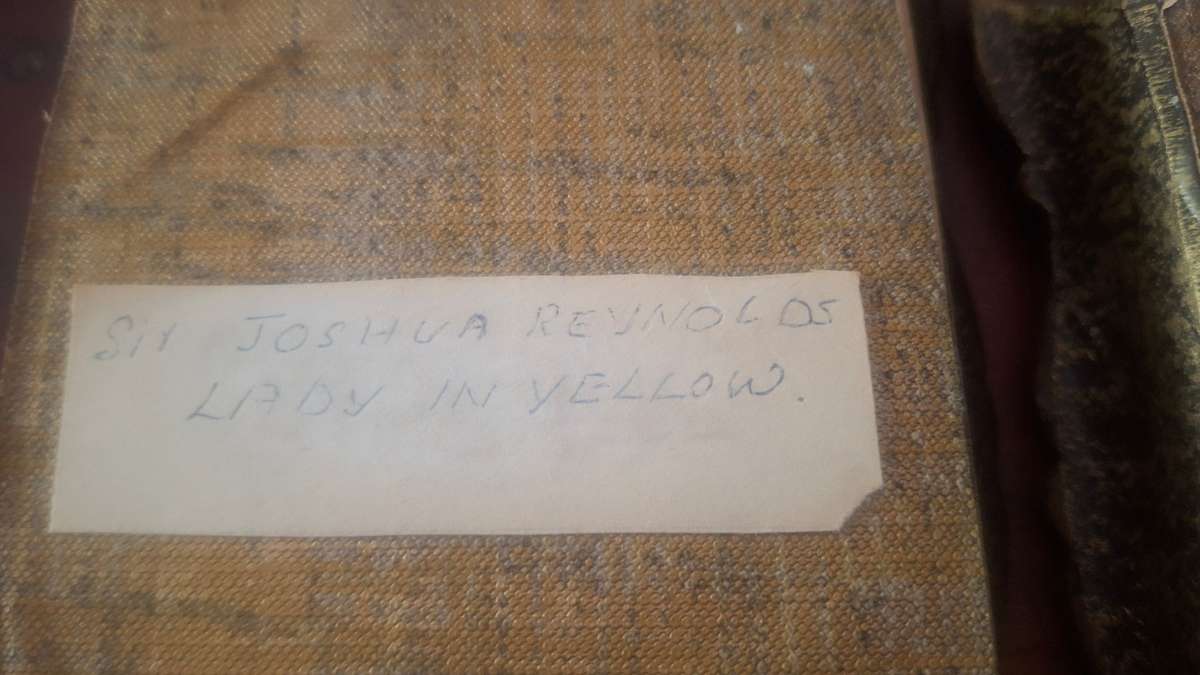 Sir JOSHUA REYNOLDS
LADY IN YELLOW.